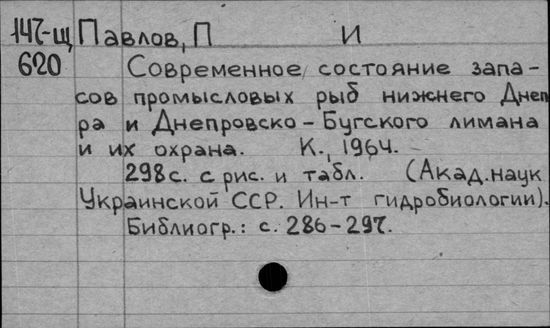 147-щ Павлов, П И
620 Современное состояние запа-
сов промысловых рыб нижнего Днеп
ра и Днепровско-Бугского лимана
и их охрана. К., 1964.
298с. с рис. и табл. (Акад. наук
Украинской ССР. Ин-т гидробиологии).
Библиогр.: с. 286-297.